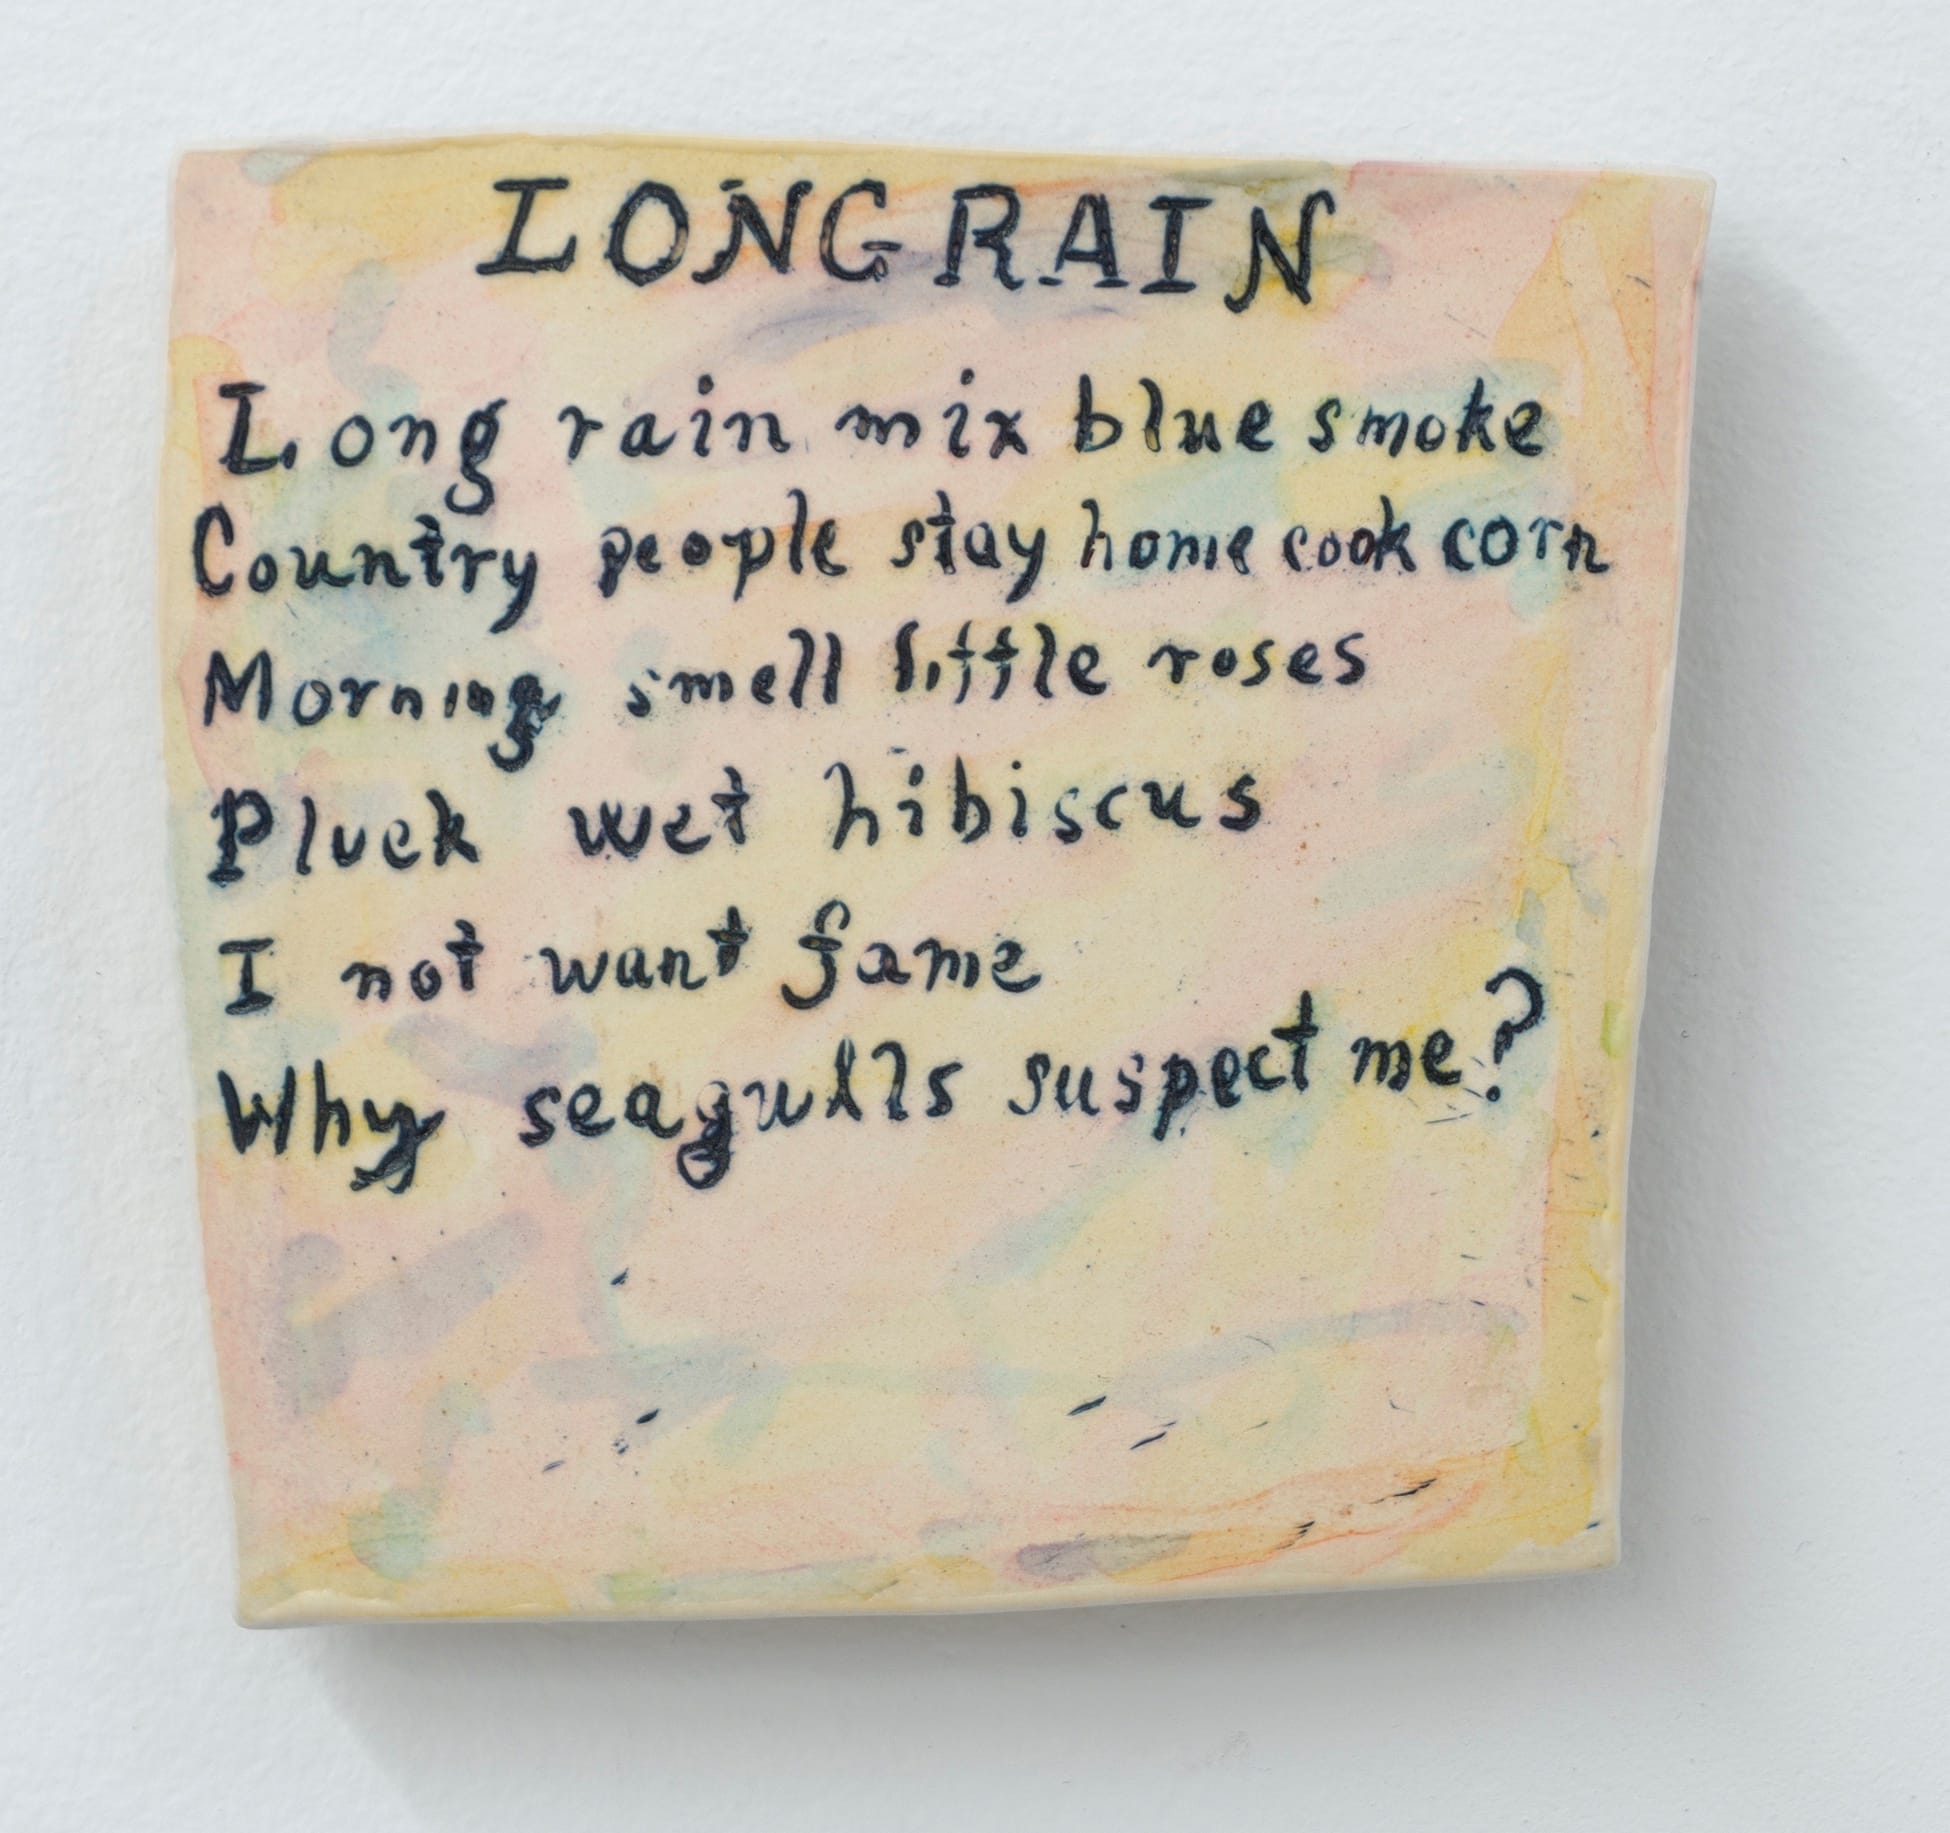 LONG RAIN
Long rain mix blue smoke
Country people stay home cook corn
Morning smell little roses
Pluck wet hibiscus
I not want fame
Why seagulls suspect me?